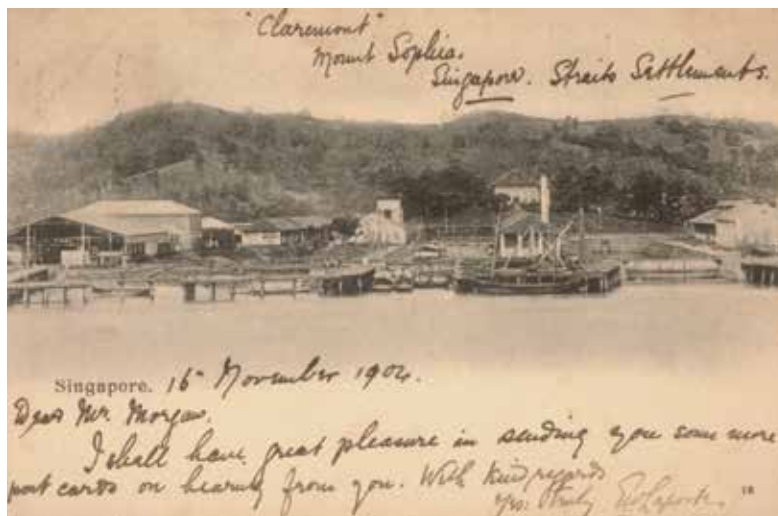 "Claremont"
Mount Sophia.
Singapore. Straits Settlements.
Singapore. 16th November 1904.
Dear Mr. Morgan.
I shall have great pleasure in sending you some more
post cards on hearing from you. With kind regards
yrs. truly
18